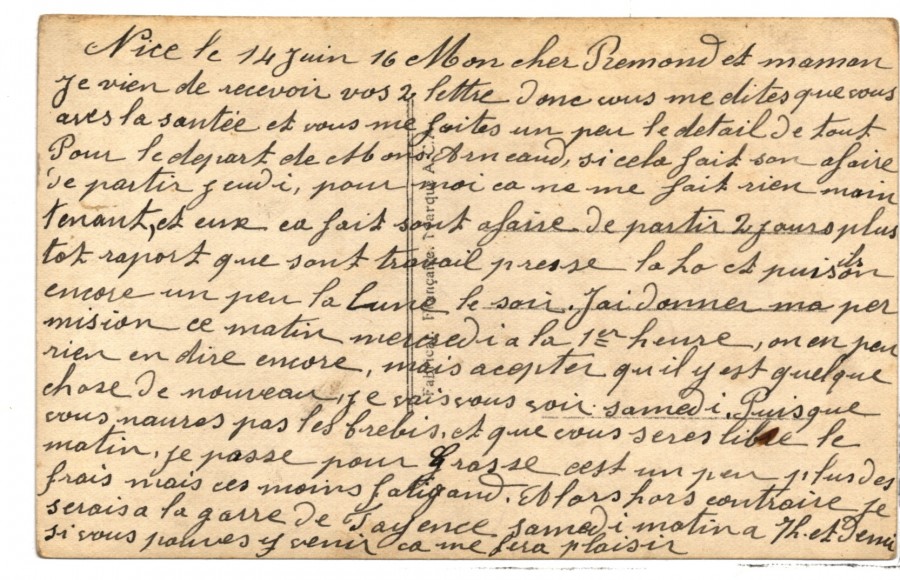 Nice le 14 Juin 16 Mon cher Premond et maman
Je vien de recevoir vos 2 lettre donc vous me dites que vous
aves la santée et vous me faites un peu le detail de tout
Pour le depart de Mons. Arneaud, si cela fait son afaire
de partir jeudi, pour moi ca ne me fait rien main
tenant, et eux ca fait sont afaire de partir 2 jours plus
tot raport que sont travail presse la ho et puis ils on
encore un peu la Lune le soir. J'ai donner ma per
mision ce matin mercredi a la 1er heure, on en peu
rien en dire encore, mais acepter qu'il y est quelque
chose de nouveau, je vais vous voir samedi. Puisque
vous n'aures pas les brebis, et que vous seres libre le
matin, je passe pour Grasse cest un peu plus des
frais mais ces moins fatigand. Alors hors contraire je
serais a la garre de Fayence samedi matin a 7h. et Demi
si vous pouves y venir ca me fera plaisir
Fabricat. Française. Marque A.